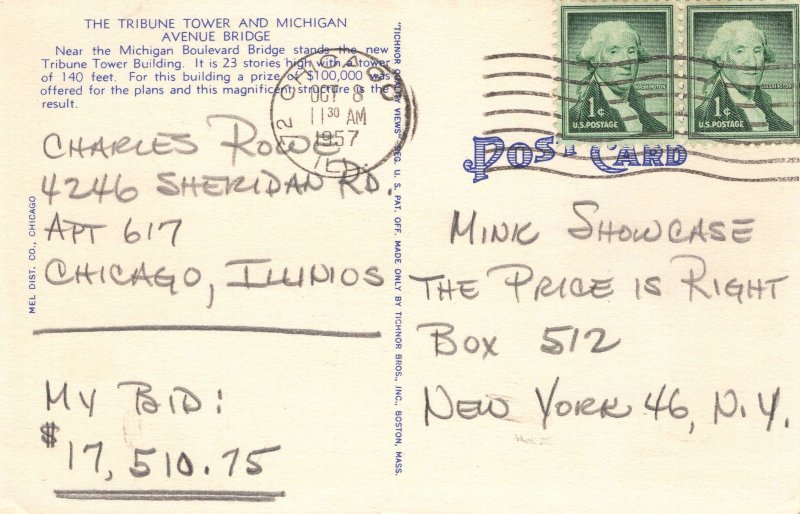 THE TRIBUNE TOWER AND MICHIGAN
AVENUE BRIDGE
Near the Michigan Boulevard Bridge stands the new
Tribune Tower Building. It is 23 stories high with a tower
of 140 feet. For this building a prize of $100,000 was
offered for the plans and this magnificent structure is the
result.
CHICAGO
12
OCT 8
11 30 AM
1957
ILL.
CHARLES ROWE
4246 SHERIDAN RD.
APT 617
CHICAGO, ILLINIOS
MY BID:
$17,510.75
MEL DIST. CO., CHICAGO
"TICHNOR QUALITY VIEWS" REG. U. S. PAT. OFF. MADE ONLY BY TICHNOR BROS., INC., BOSTON, MASS.
WASHINGTON
1¢
U.S. POSTAGE
WASHINGTON
1¢
U.S. POSTAGE
POST CARD
MINK SHOWCASE
THE PRICE IS RIGHT
BOX 512
NEW YORK 46, N.Y.